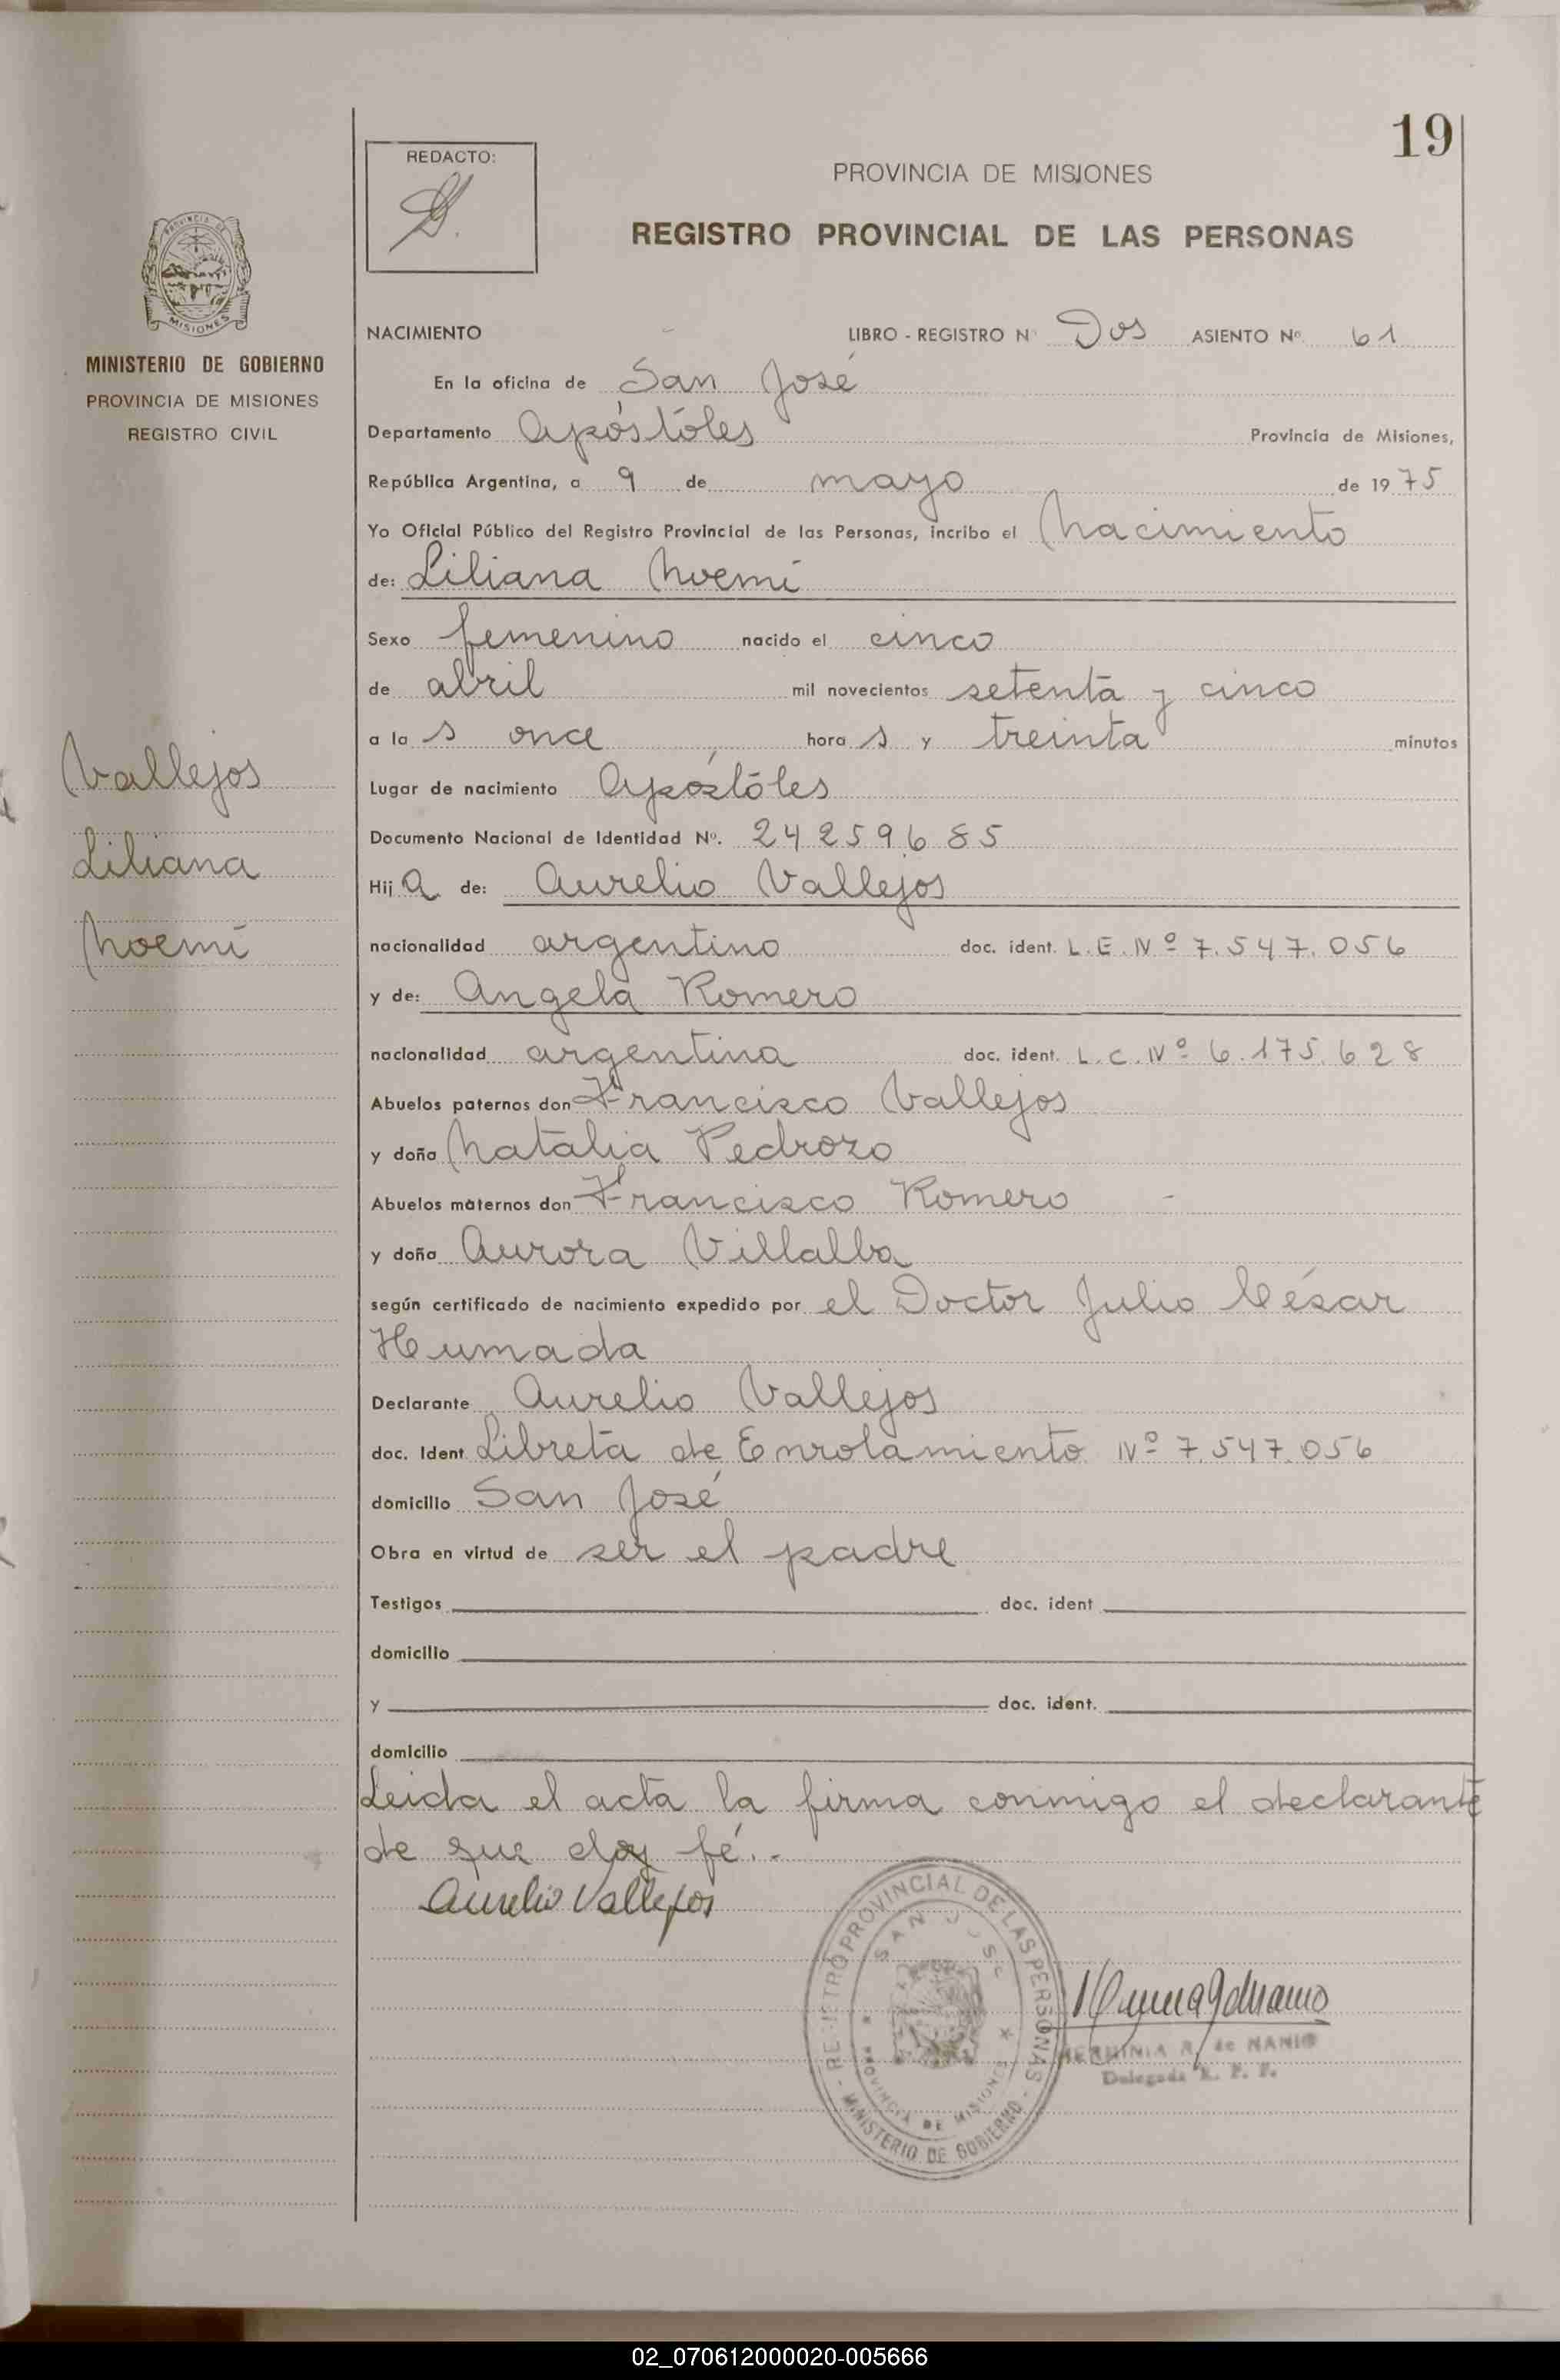 19
REDACTO:
PROVINCIA DE MISIONES
REGISTRO PROVINCIAL DE LAS PERSONAS
MISIONES
MINISTERIO DE GOBIERNO
PROVINCIA DE MISIONES
REGISTRO CIVIL
Vallejos
Liliana
Noemí
NACIMIENTO LIBRO - REGISTRO Nº Dos ASIENTO Nº 61
En la oficina de San José
Departamento Apóstóles Provincia de Misiones,
República Argentina, a 9 de mayo de 1975
Yo Oficial Público del Registro Provincial de las Personas, incribo el Nacimiento
de: Liliana Noemí
Sexo femenino nacido el cinco
de abril mil novecientos setenta y cinco
a la s once hora s y treinta minutos
Lugar de nacimiento Apóstóles
Documento Nacional de Identidad Nº. 24259685
Hij a de: Aurelio Vallejos
nacionalidad argentino doc. ident. L.E. Nº 7.547.056
y de: Angela Romero
nacionalidad argentina doc. ident. L.C. Nº 6.175.628
Abuelos paternos don Francisco Vallejos
y doña Natalia Pedrozo
Abuelos maternos don Francisco Romero
y doña Aurora Villalba
según certificado de nacimiento expedido por el Doctor Julio César
Humada
Declarante Aurelio Vallejos
doc. Ident Libreta de Enrolamiento Nº 7.547.056
domicilio San José
Obra en virtud de ser el padre
Testigos doc. ident
domicilio
y doc. ident.
domicilio
Leida el acta la firma conmigo el declarante
de que doy fé.-
Aurelio Vallejos
REGISTRO PROVINCIAL DE LAS PERSONAS - MINISTERIO DE GOBIERNO -
SAN JOSE
PROVINCIA DE MISIONES
HERMINIA R. de NANIO
Delegada R. P. P.
02_070612000020-005666